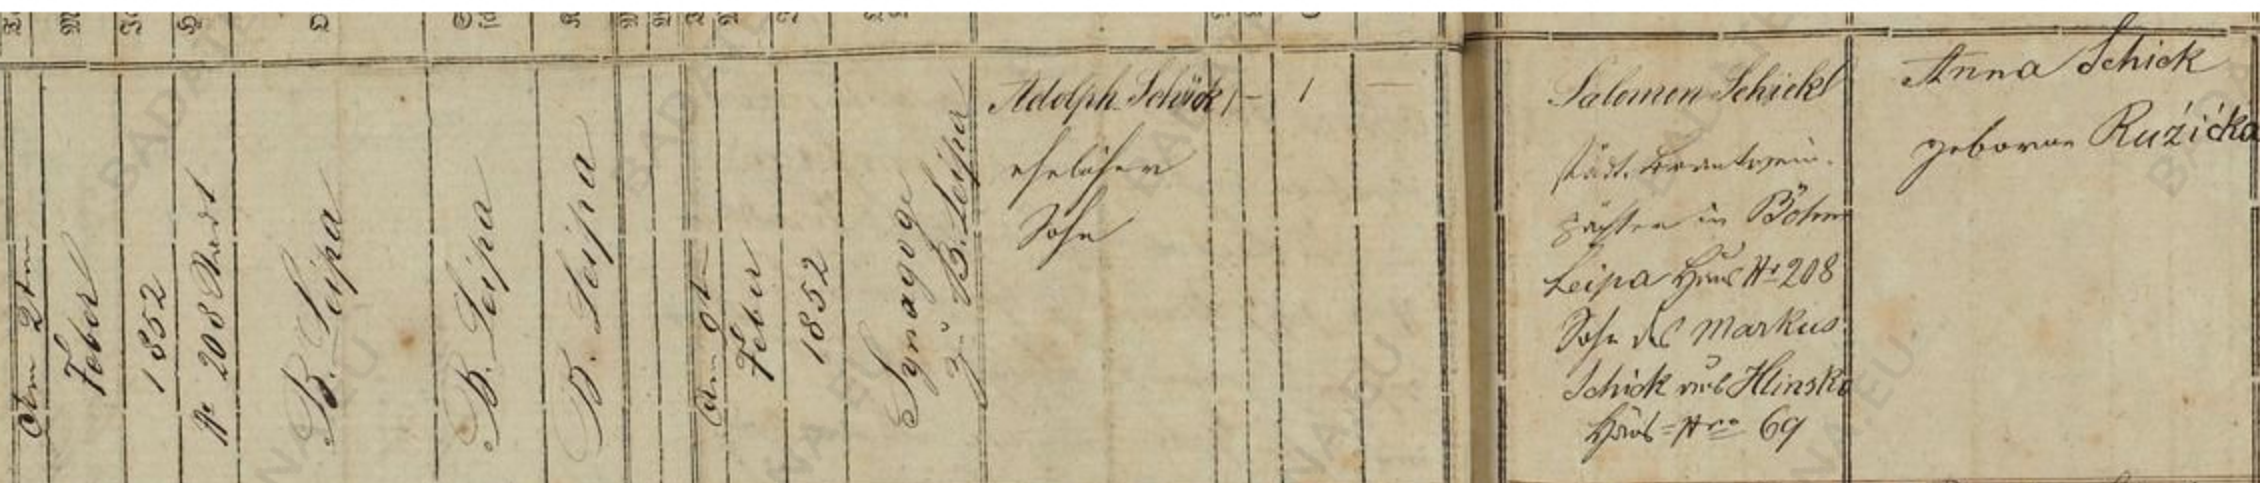 Am 2ten
Feber
1852
Nr 208 Stadt
B. Leipa
B. Leipa
B. Leipa
Am 9t
Feber
1852
Synagoge
zu B. Leipa
Adolph Schick
ehelicher
Sohn
1
-
1
-
Salomon Schick
städt. Brantwein-
pächter in Böhm
Leipa Haus Nr 208
Sohn des Markus
Schick aus Hlinsko
Haus-Nro 69
Anna Schick
geborne Ružićka